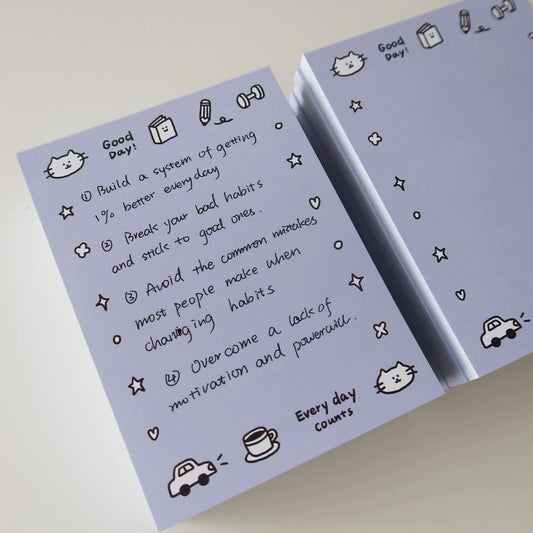 Good
Day!
① Build a system of getting
1% better everyday
② Break your bad habits
and stick to good ones.
③ Avoid the common mistakes
most people make when
changing habits
④ Overcome a lack of
motivation and powerwill.
Every day
counts
Good
Day!